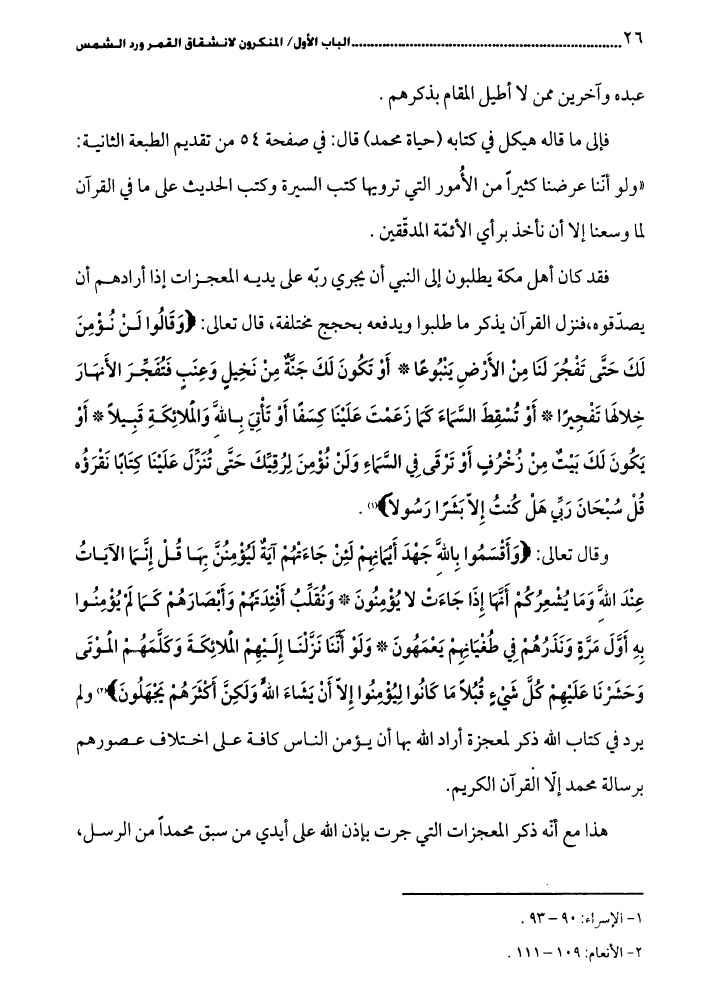 ٢٦ ................................................................ الباب الأول/ المنكرون لانشقاق القمر ورد الشمس
عبده وآخرين ممن لا أطيل المقام بذكرهم .
فإلى ما قاله هيكل في كتابه (حياة محمد) قال: في صفحة ٥٤ من تقديم الطبعة الثانية:
«ولو أنّنا عرضنا كثيراً من الأُمور التي ترويها كتب السيرة وكتب الحديث على ما في القرآن
لما وسعنا إلا أن نأخذ برأي الأئمّة المدقّقين .
فقد كان أهل مكة يطلبون إلى النبي أن يجري ربّه على يديه المعجزات إذا أرادهم أن
يصدّقوه،فنزل القرآن يذكر ما طلبوا ويدفعه بحجج مختلفة، قال تعالى: ﴿وَقَالُوا لَنْ نُؤْمِنَ
لَكَ حَتَّى تَفْجُرَ لَنَا مِنْ الأَرْضِ يَنْبُوعًا * أَوْ تَكُونَ لَكَ جَنَّةٌ مِنْ نَخِيلٍ وَعِنَبٍ فَتُفَجِّرَ الأَنهَارَ
خِلالهَا تَفْجِيرًا * أَوْ تُسْقِطَ السَّمَاءَ كَمَا زَعَمْتَ عَلَيْنَا كِسَفًا أَوْ تَأْتِيَ بِاللهِ وَالْمَلائِكَةِ قَبِيلاً * أَوْ
يَكُونَ لَكَ بَيْتٌ مِنْ زُخْرُفٍ أَوْ تَرْقَى فِي السَّمَاءِ وَلَنْ نُؤْمِنَ لِرُقِيِّكَ حَتَّى تُنَزِّلَ عَلَيْنَا كِتَابًا نَقْرَؤُه
قُلْ سُبْحَانَ رَبِّي هَلْ كُنتُ إِلاّ بَشَرًا رَسُولاً﴾(١) .
وقال تعالى: ﴿وَأَقْسَمُوا بِاللهِ جَهْدَ أَيْمَانِهِمْ لَئِنْ جَاءَتْهُمْ آيَةٌ لَيُؤْمِنُنَّ بِهَا قُلْ إِنَّمَا الآيَاتُ
عِنْدَ اللهِ وَمَا يُشْعِرُكُمْ أَنَّهَا إِذَا جَاءَتْ لا يُؤْمِنُونَ * وَنُقَلِّبُ أَفْئِدَتَهُمْ وَأَبْصَارَهُمْ كَمَا لَمْ يُؤْمِنُوا
بِهِ أَوَّلَ مَرَّةٍ وَنَذَرُهُمْ فِي طُغْيَانِهِمْ يَعْمَهُونَ * وَلَوْ أَنَّنَا نَزَّلْنَا إِلَيْهِمُ الْمَلائِكَةَ وَكَلَّمَهُمْ الْمَوْتَى
وَحَشَرْنَا عَلَيْهِمْ كُلَّ شَيْءٍ قُبُلاً مَا كَانُوا لِيُؤْمِنُوا إِلاّ أَنْ يَشَاءَ اللهُ وَلَكِنَّ أَكْثَرَهُمْ يَجْهَلُونَ﴾(٢) ولم
يرد في كتاب الله ذكر لمعجزة أراد الله بها أن يؤمن الناس كافة على اختلاف عصورهم
برسالة محمد إلّا القرآن الكريم.
هذا مع أنّه ذكر المعجزات التي جرت بإذن الله على أيدي من سبق محمداً من الرسل،
١- الإسراء: ٩٠ – ٩٣ .
٢- الأنعام: ١٠٩ – ١١١ .